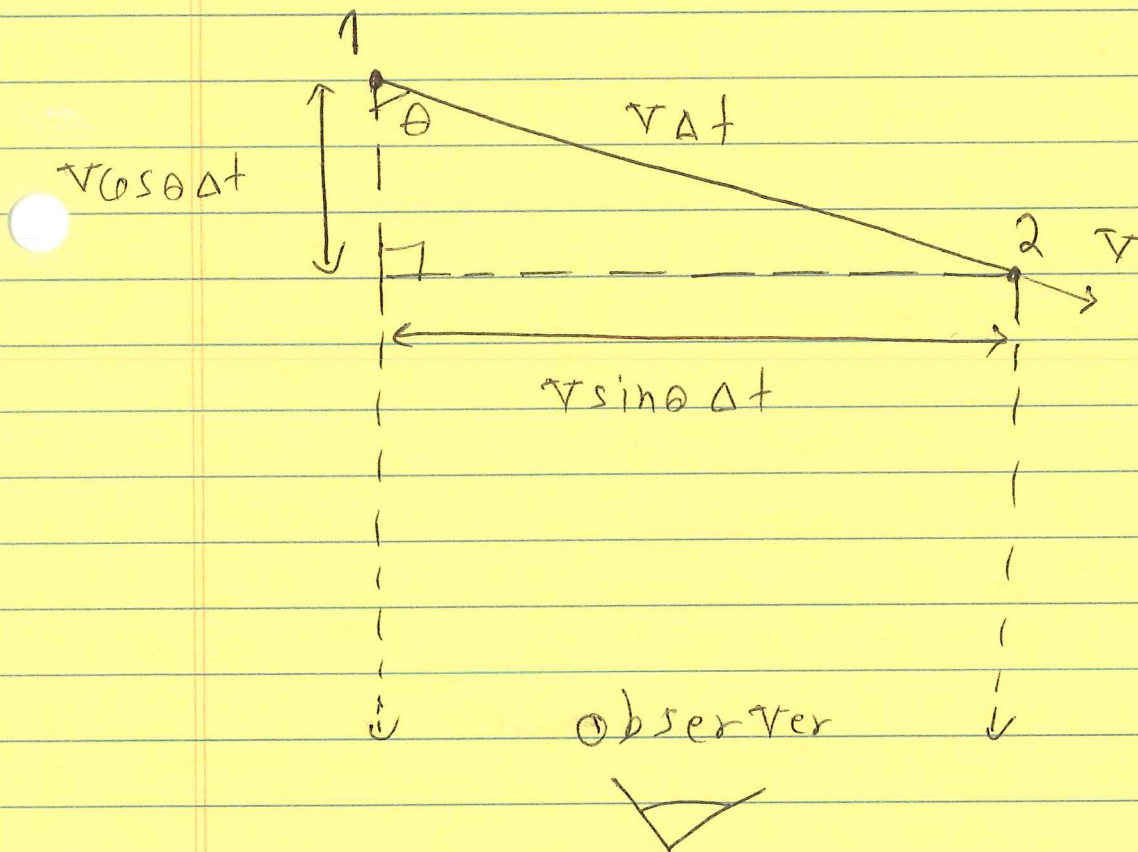 1
θ
v Δt
v cosθ Δt
2
v
v sinθ Δt
observer